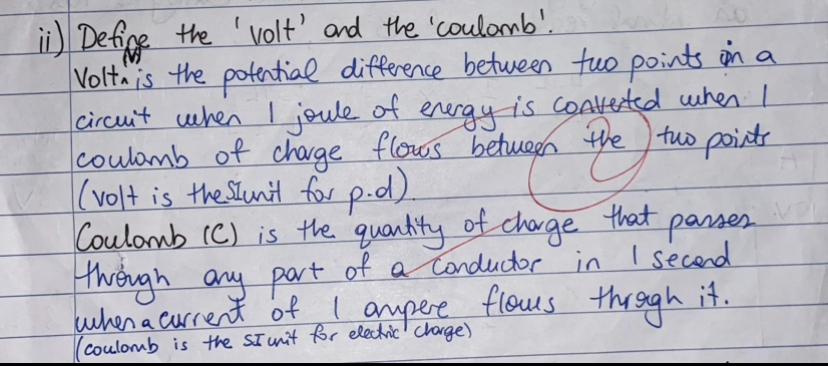 ii) Define the 'volt' and the 'coulomb'.
Volt (V) is the potential difference between two points in a
circuit when 1 joule of energy is converted when 1
coulomb of charge flows between the two points
(volt is the SI unit for p.d).
Coulomb (C) is the quantity of charge that passes
through any part of a conductor in 1 second
when a current of 1 ampere flows throgh it.
(coulomb is the SI unit for electric charge)
2